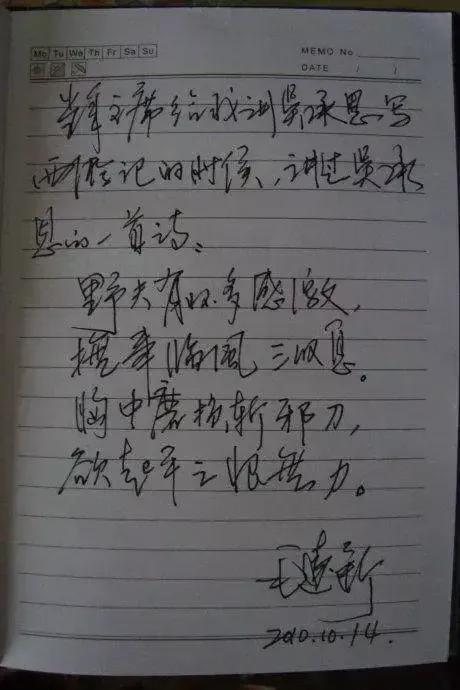 Mo Tu We Th Fr Sa Su
MEMO No
DATE / /
当年主席给我讲吴承恩写
西游记的时候、讲过吴承
恩的一首诗、
野夫有怀多感激,
抚事临风三叹息。
胸中磨损斩邪刀,
欲起平之恨无力。
毛远新
2010.10.14.